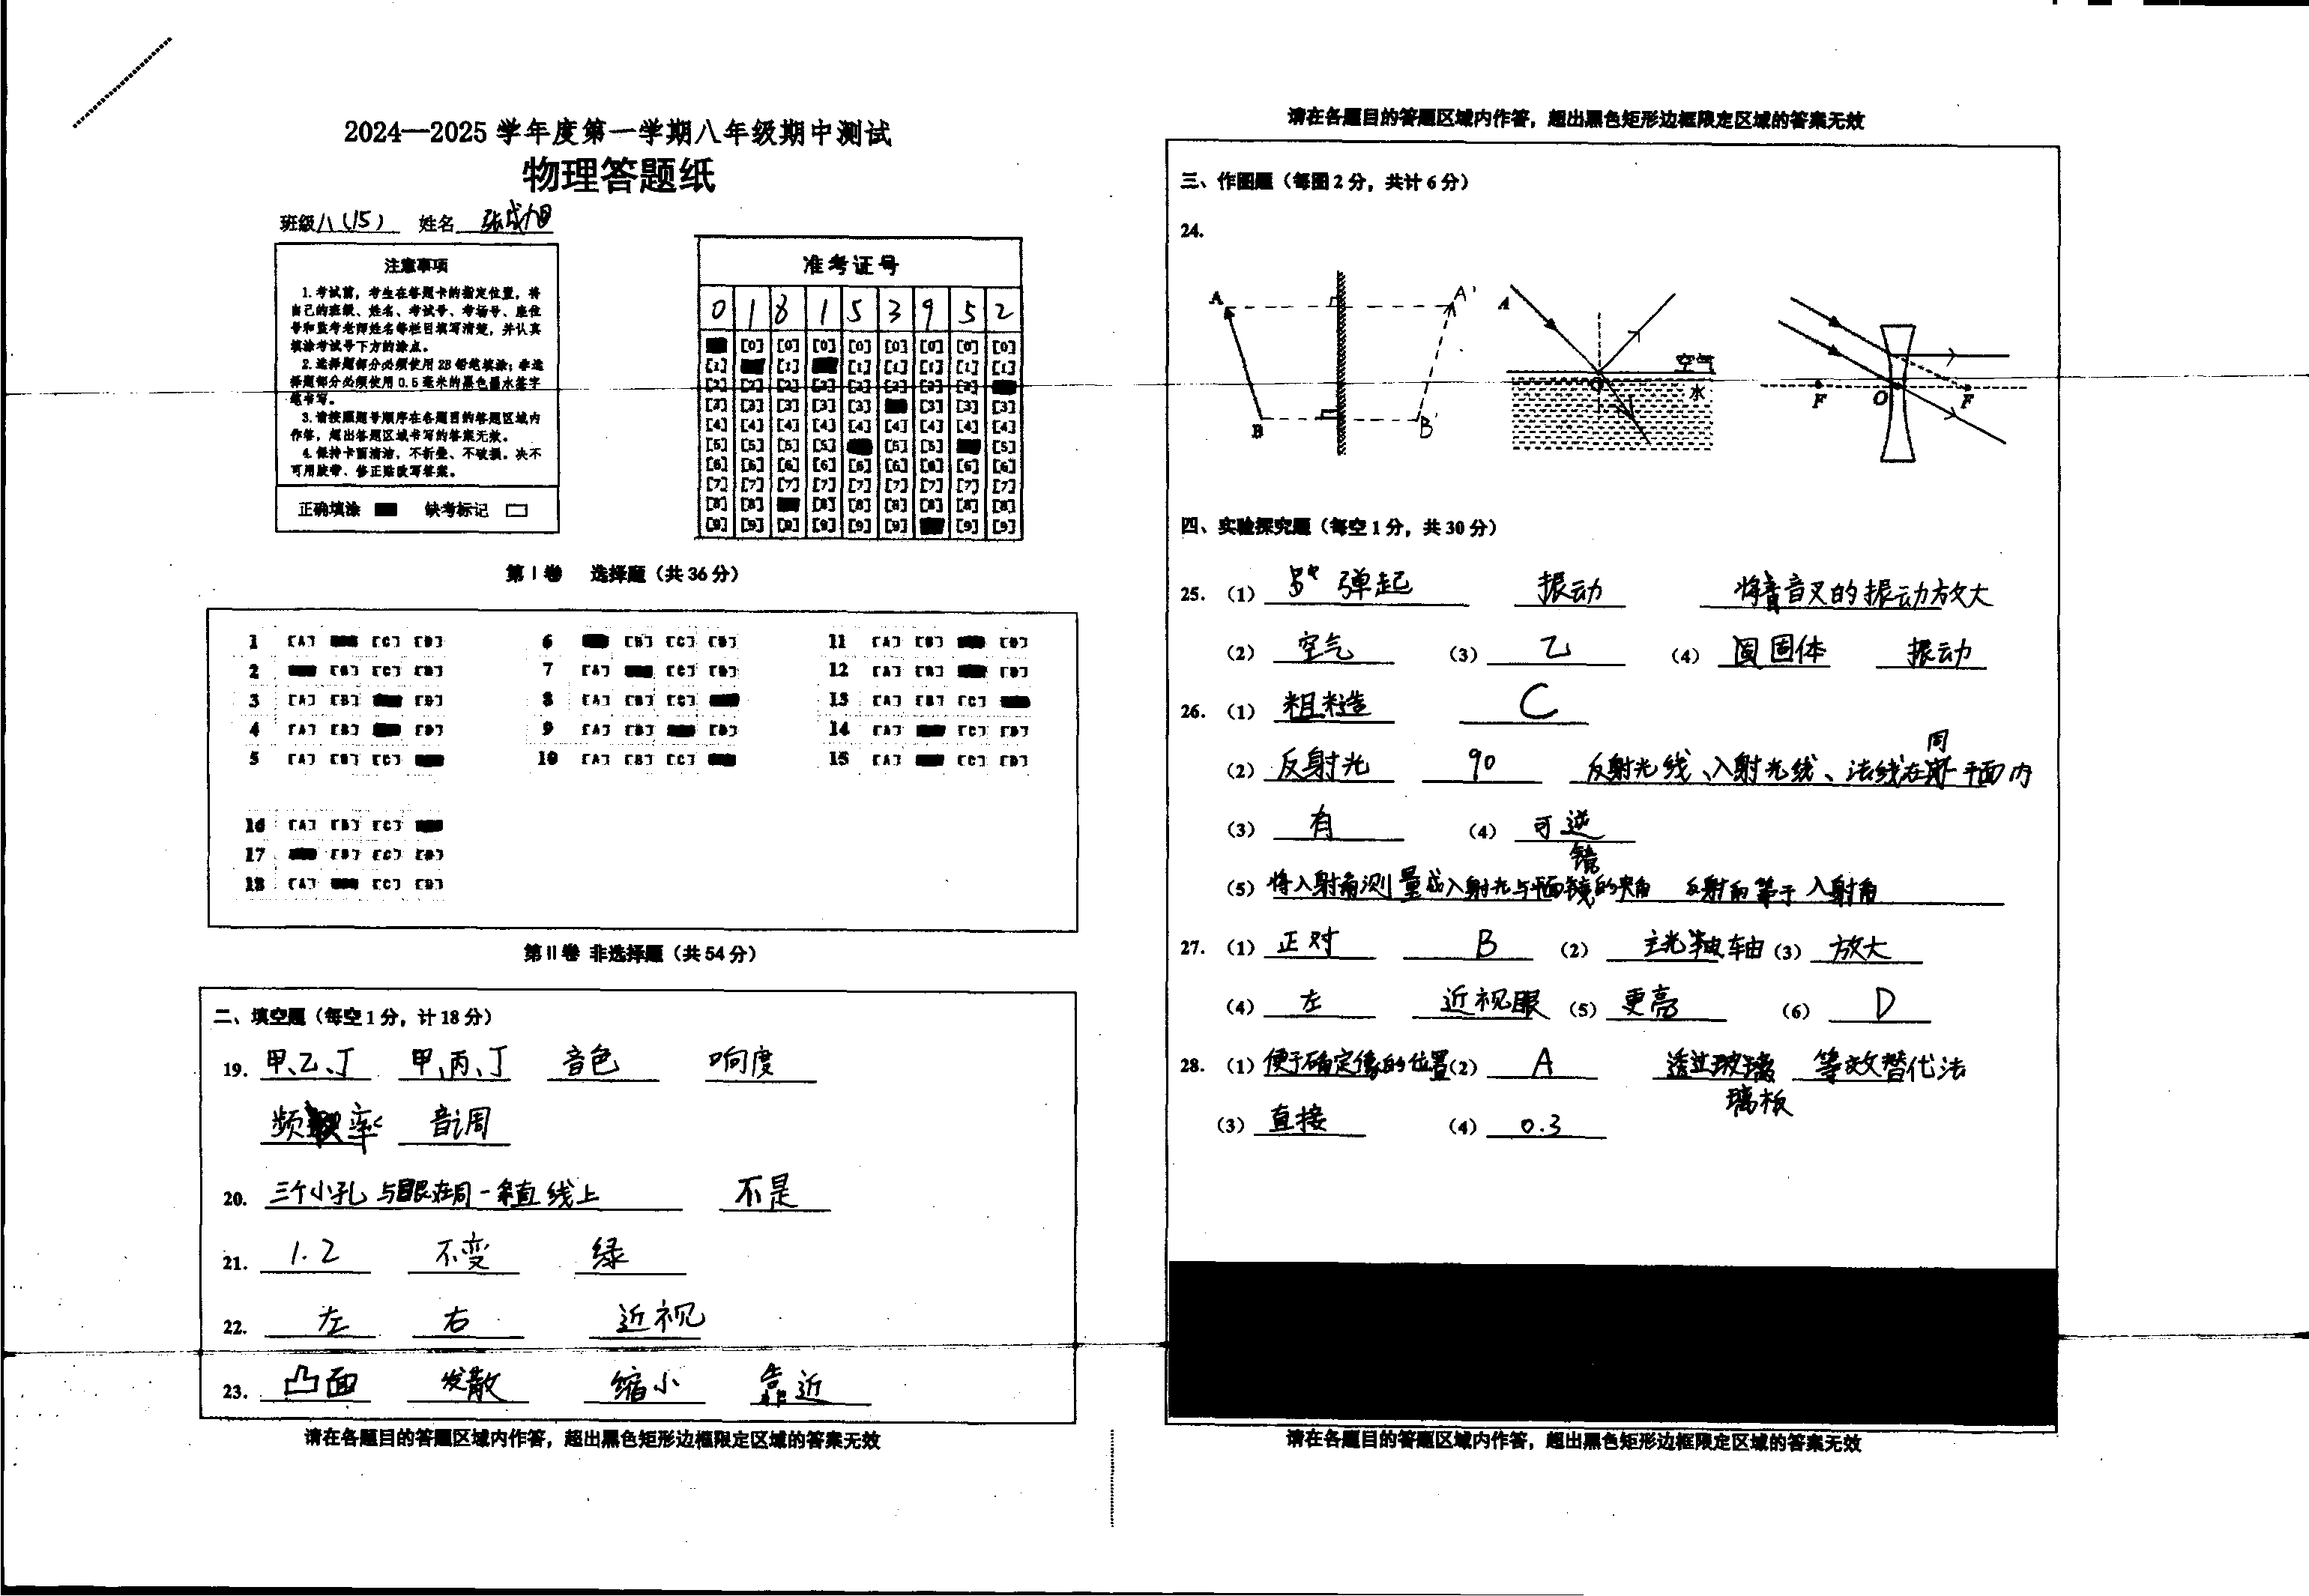 2024—2025 学年度第一学期八年级期中测试
物理答题纸
班级 八(15) 姓名 张成旭
注意事项
1.考试前，考生在答题卡的指定位置，将
自己的班级、姓名、考试号、考场号、座位
号和监考老师姓名等栏目填写清楚，并认真
填涂考试号下方的涂点。
2.选择题部分必须使用2B铅笔填涂；非选
择题部分必须使用0.5毫米的黑色墨水签字
笔书写。
3.请按照题号顺序在各题目的答题区域内
作答，超出答题区域书写的答案无效。
4.保持卡面清洁，不折叠、不破损。决不
可用胶带、修正贴改写答案。
正确填涂 缺考标记
准考证号
0 1 8 1 5 3 9 5 2
[0] [0] [0] [0] [0] [0] [0] [0]
[1] [1] [1] [1] [1] [1] [1]
[2] [2] [2] [2] [2] [2] [2] [2]
[3] [3] [3] [3] [3] [3] [3] [3]
[4] [4] [4] [4] [4] [4] [4] [4] [4]
[5] [5] [5] [5] [5] [5] [5]
[6] [6] [6] [6] [6] [6] [6] [6] [6]
[7] [7] [7] [7] [7] [7] [7] [7] [7]
[8] [8] [8] [8] [8] [8] [8] [8]
[9] [9] [9] [9] [9] [9] [9] [9]
第Ⅰ卷 选择题（共36分）
1 [A] [C] [D] 6 [B] [C] [D] 11 [A] [B] [D]
2 [B] [C] [D] 7 [A] [C] [D] 12 [A] [B] [D]
3 [A] [B] [D] 8 [A] [B] [C] 13 [A] [B] [C]
4 [A] [B] [D] 9 [A] [B] [D] 14 [A] [C] [D]
5 [A] [B] [C] 10 [A] [B] [C] 15 [A] [C] [D]
16 [A] [B] [C]
17 [B] [C] [D]
18 [A] [C] [D]
第Ⅱ卷 非选择题（共54分）
二、填空题（每空1分，计18分）
19. 甲、乙、丁 甲、丙、丁 音色 响度
频率 音调
20. 三个小孔与眼在同一条直线上 不是
21. 1.2 不变 绿
22. 左 右 近视
23. 凸面 发散 缩小 靠近
请在各题目的答题区域内作答，超出黑色矩形边框限定区域的答案无效
请在各题目的答题区域内作答，超出黑色矩形边框限定区域的答案无效
三、作图题（每图2分，共计6分）
24.
A A' B B'
A 空气 O 水
F O F
四、实验探究题（每空1分，共30分）
25.（1） 弹起 振动 将音叉的振动放大
（2） 空气 （3） 乙 （4） 固体 振动
26.（1） 粗糙 C
（2） 反射光 90 反射光线、入射光线、法线在同一平面内
（3） 有 （4） 可逆
（5） 将入射角测量成入射光与平面镜的夹角 反射角等于入射角
27.（1） 正对 B （2） 主光轴 （3） 放大
（4） 左 近视眼 （5） 更亮 （6） D
28.（1） 便于确定像的位置 （2） A 透过玻璃板 等效替代法
（3） 直接 （4） 0.3
请在各题目的答题区域内作答，超出黑色矩形边框限定区域的答案无效